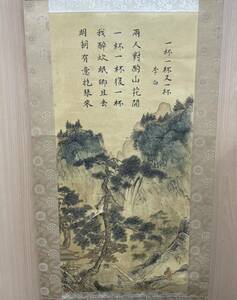 一杯一杯又一杯
李白
兩人對酌山花開
一杯一杯復一杯
我醉欲眠卿且去
明朝有意抱琴來